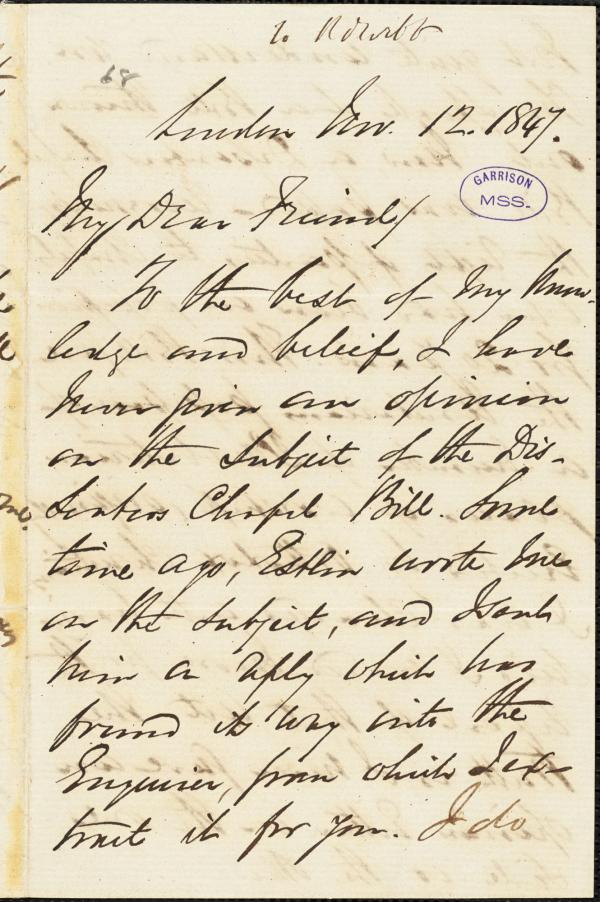 to R D Webb
68
London Nov. 12. 1847.
GARRISON
MSS.
My Dear Friend/
To the best of my know-
ledge and beleif, I have
never given an opinion
on the Subject of the Dis-
senters Chapel Bill. Some
time ago, Estlin wrote me
on the subject, and I sent
him a reply which has
found its way into the
Enquirer, from which I ex-
tract it for you. I do